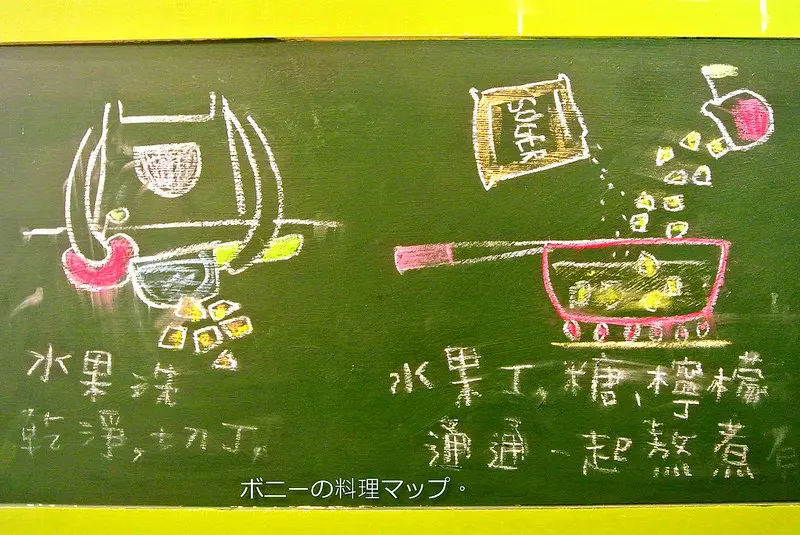 SUGER
水果洗
乾淨,切丁。
水果丁,糖、檸檬
通通一起熬煮
ボニーの料理マップ。